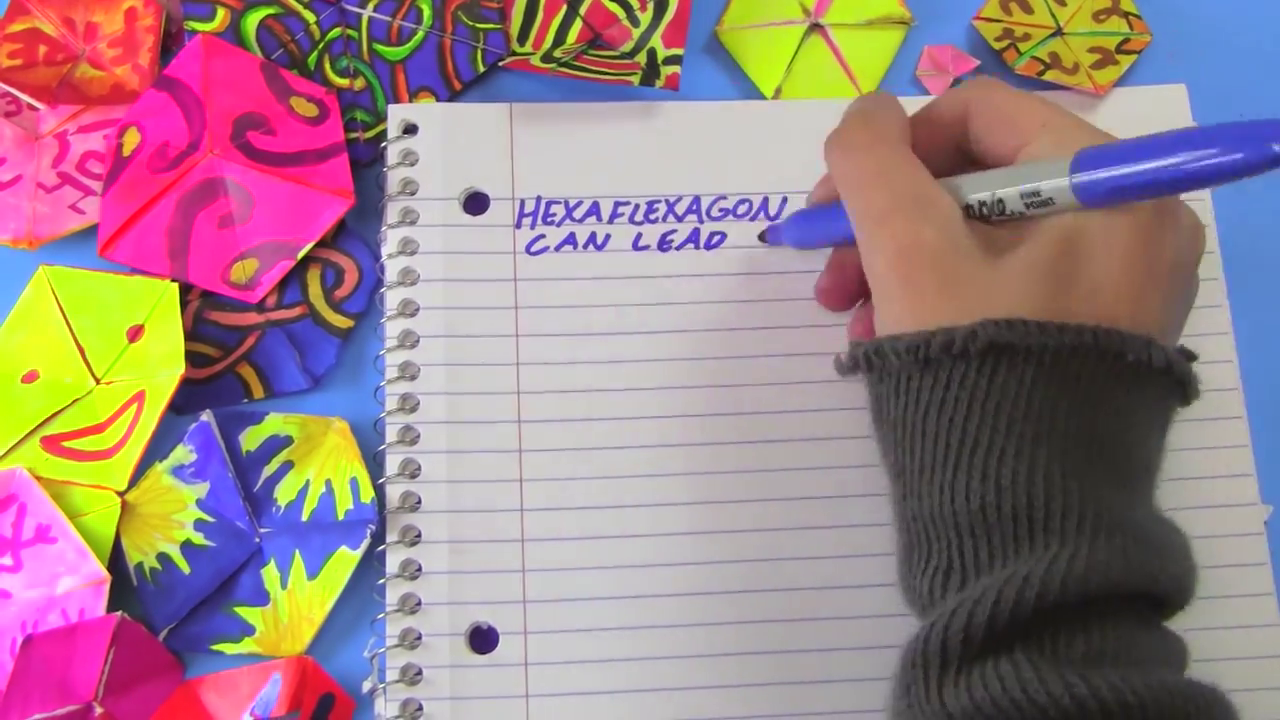 HEXAFLEXAGON
CAN LEAD
FINE
POINT